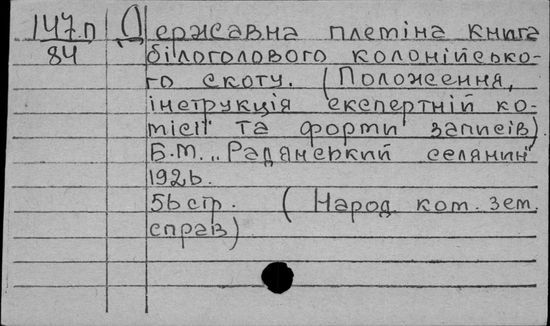 147.п Державна плетіна книга
84 білоголового колонійсько-
го скоту. (Положення,
інструкція експертній ко-
місії та форти записів)
Б.М. „Радянський селянин"
1926.
56 стр. (Народ. ком. зем.
справ)